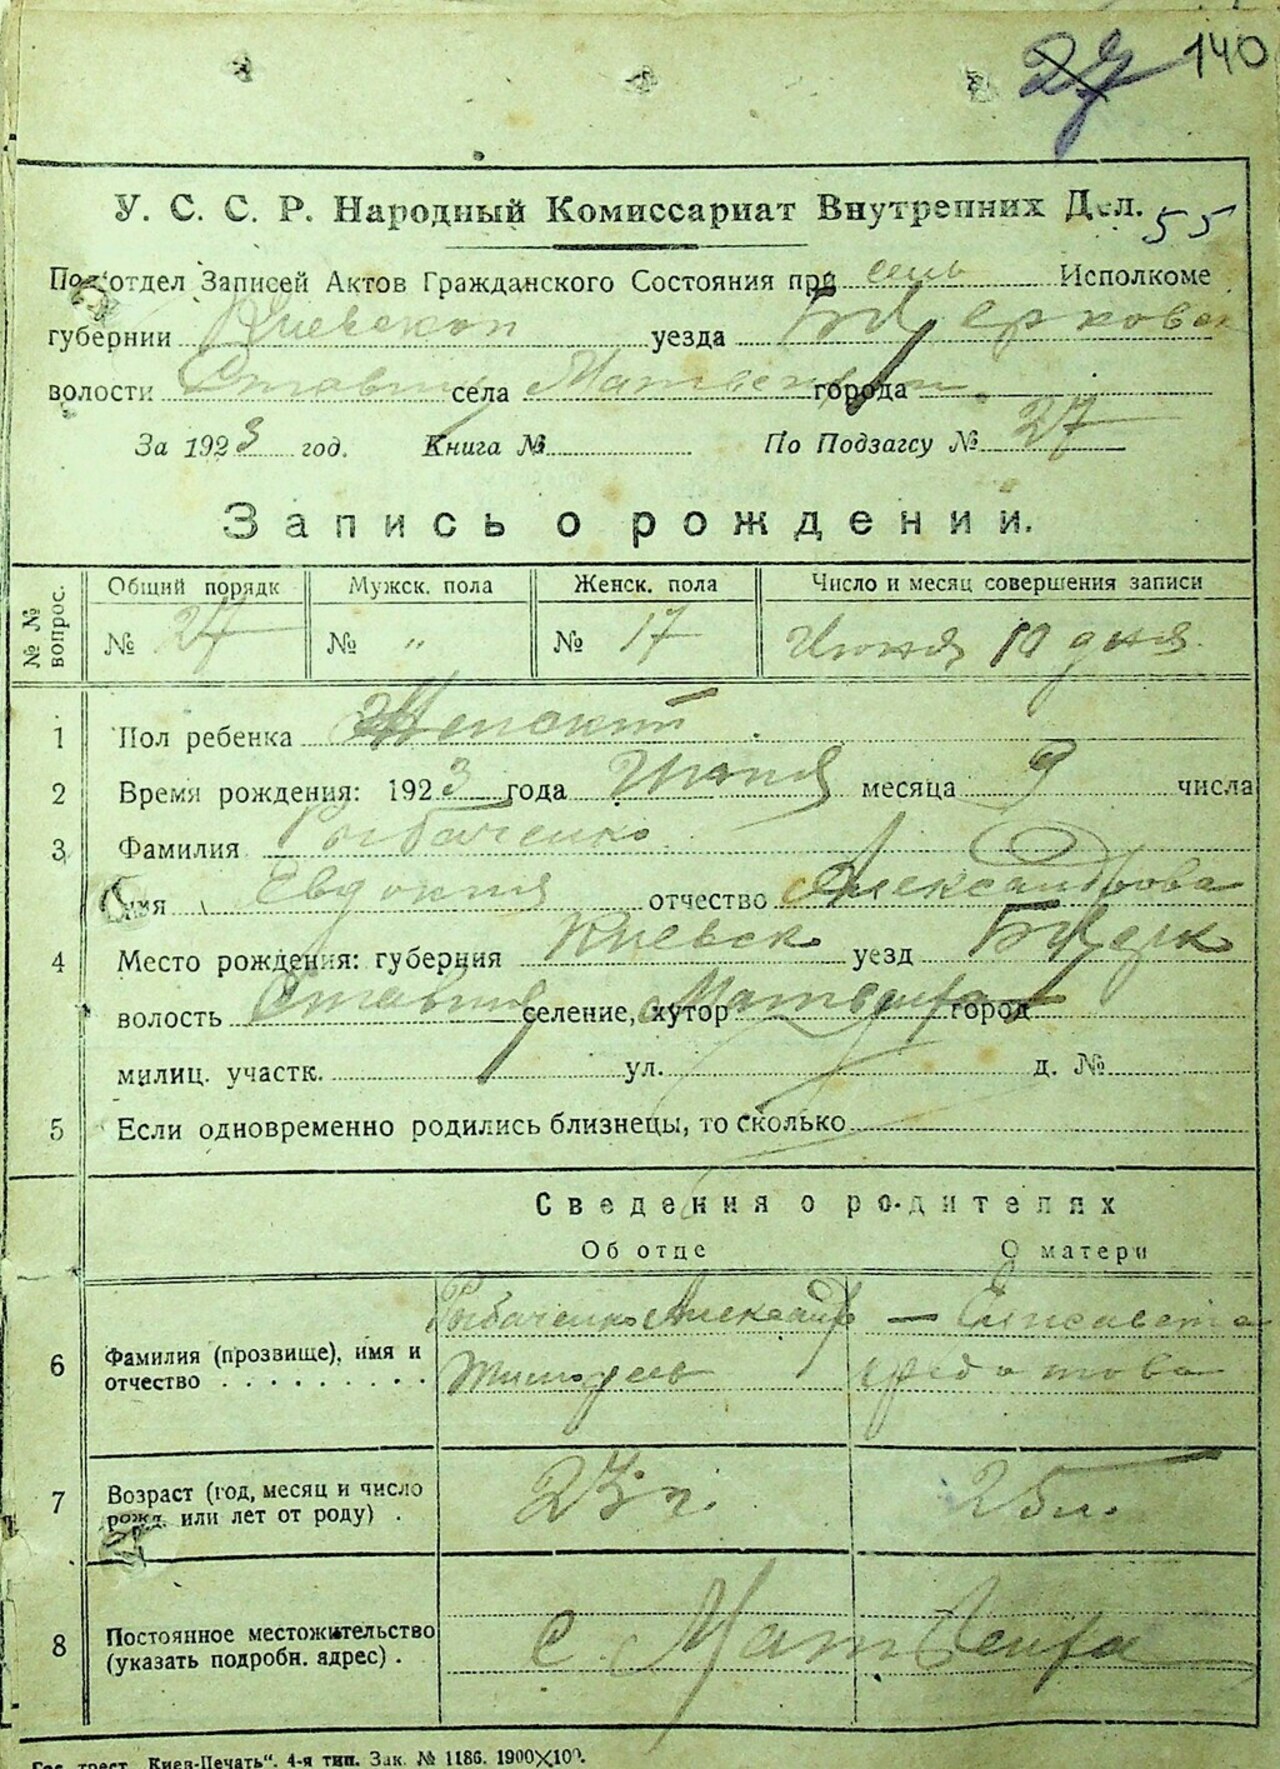 27 140
У. С. С. Р. Народный Комиссариат Внутренних Дел. 55
Подотдел Записей Актов Гражданского Состояния при сель Исполкоме
губернии Киевской уезда Б Церковск
волости Ставищ села города
За 1923 год. Книга № По Подзагсу № 27
Запись о рождении.
№ № вопрос. Общий порядк Мужск. пола Женск. пола Число и месяц совершения записи
№ 27 № " № 17 Июня 10 дня
1 Пол ребенка Женский
2 Время рождения: 1923 года Июня месяца 9 числа
3 Фамилия Рыбаченко
Имя Евдокия отчество Александрова
4 Место рождения: губерния Киевск уезд БЦерк
волость Ставищ селение, хутор Матвеиха город
милиц. участк. ул. д. №
5 Если одновременно родились близнецы, то сколько
Сведения о родителях
Об отце О матери
6 Фамилия (прозвище), имя и отчество . . . . . . . . . Рыбаченко Александр — Елисавета
Федотова
7 Возраст (год, месяц и число рожд. или лет от роду) . 23 г. 25 л.
8 Постоянное местожительство (указать подробн. адрес) . с. Матвеиха
Гос. трест „Киев-Печать“. 4-я тип. Зак. № 1186. 1900×100.